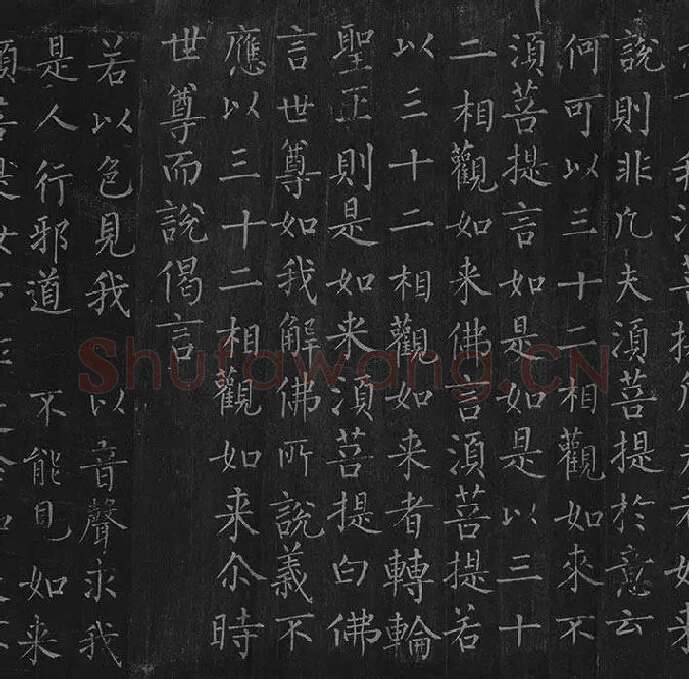 我須菩提凡夫者如来
說則非凡夫須菩提於意云
何可以三十二相觀如來不
須菩提言如是如是以三十
二相觀如来佛言須菩提若
以三十二相觀如来者轉輪
聖王則是如来須菩提白佛
言世尊如我解佛所說義不
應以三十二相觀如来尒時
世尊而說偈言
若以色見我 以音聲求我
是人行邪道 不能見如来
須菩提汝若
Shufawang.CN